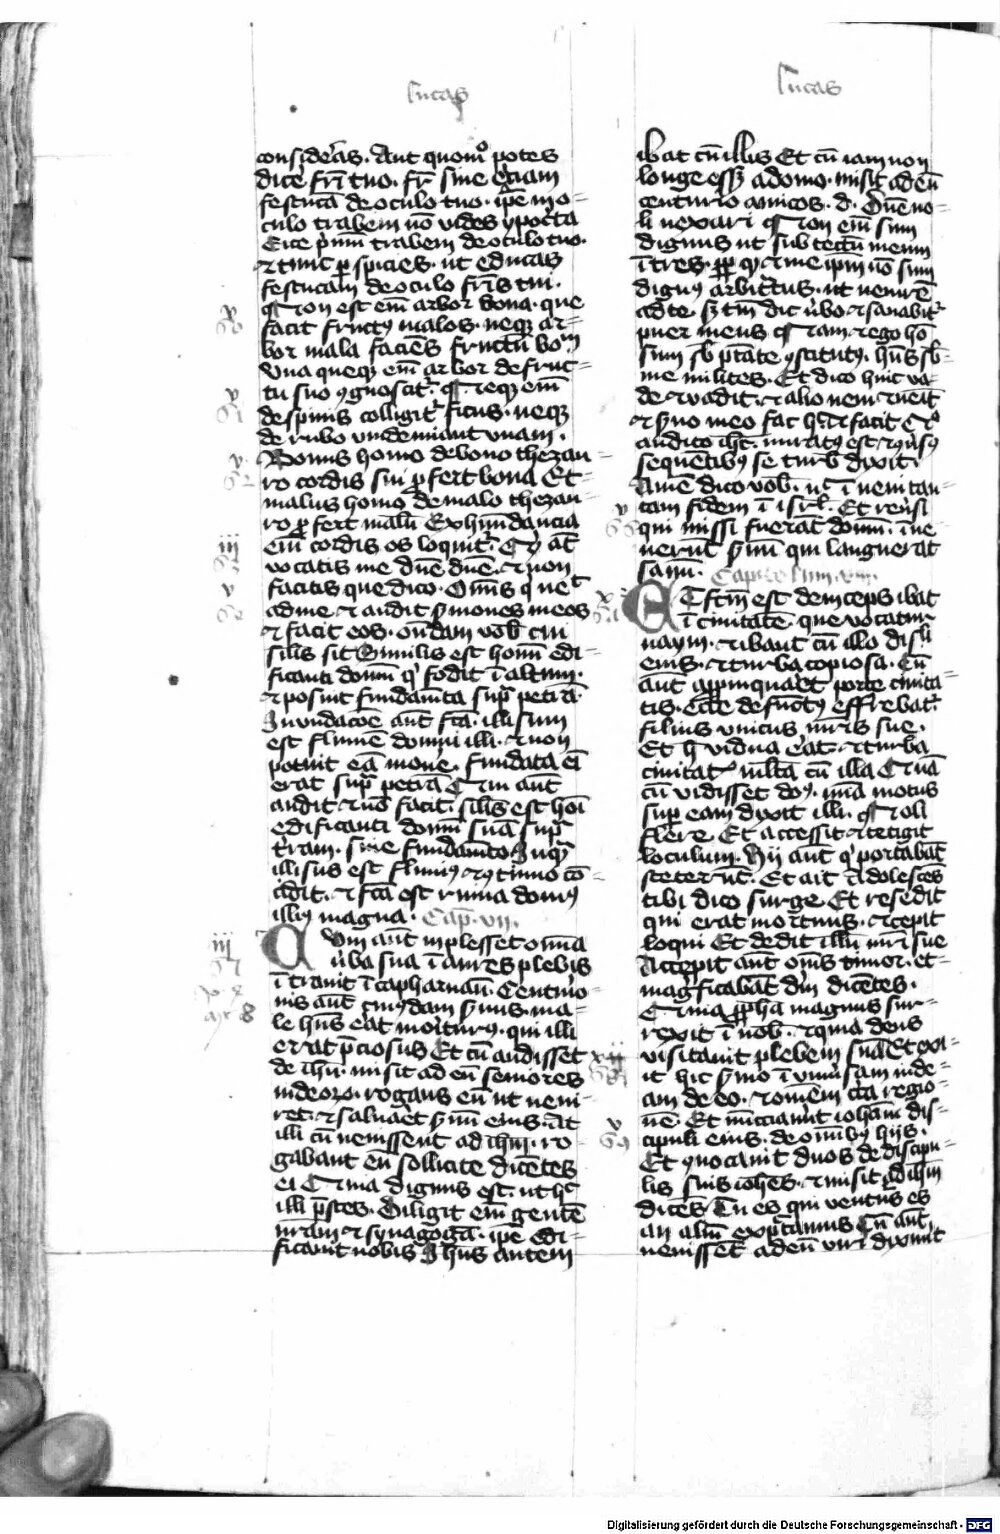 Lucas
Lucas
consideras. Aut quomo potes
dicẽ fri tuo. fr sine eiciam
festucã de oculo tuo. ipẽ in o-
culo trabem nõ vides ypocrita
Eice pmũ trabem de oculo tuo.
et tunc pspicies. ut educas
festucam de oculo fris tui.
Non est em arbor bona. que
facit fructꝰ malos. neqꝫ ar-
bor mala faciẽs fructũ bonũ
Vna queqꝫ em arbor de fruc-
tu suo ꝯgnoscitr. Neqꝫ em
de spinis colligitr ficus. neqꝫ
de rubo vindemiant vuam.
Bonus homo de bono thezau-
ro cordis sui pfert bona Et
malus homo de malo thezau-
ro pfert malũ Ex habundancia
em cordis os loquitr. Qd at
vocatis me dne dne. et non
facitis que dico. Omĩs q venit
ad me et audit smones meos
et facit eos. ondam vob cui
silis sit Similis est homĩ edi-
ficanti domũ q fodit ĩ altum.
et posuit fundamta supr petrã.
Inundacõe aut fca. illisum
est flumẽ domui illi. et non
potuit eã mouẽ. fundata em
erat supr petrã Qui aut
audit et nõ facit. silis est hoĩ
edificanti domũ suã supr
trram. sine fundamto In quã
illisus est fluuiꝰ et ꝯtinuo cõ-
cidit. et fca est ruina domꝰ
illiꝰ magna. Cap. vii.
Cum aut inplesset omia
uba sua ĩ aures plebis
ĩtrauit ĩ capharnaũ. Centurio-
nis aut cuiꝰdam suus. ma-
le hñs erat moriturꝰ. qui illi
erat pciosus Et cũ audisset
de ihu. misit ad eũ seniores
iudeoꝝ. rogans eũ ut veni-
ret. et saluaret suũ eius. At
illi cũ venissent ad ihm. ro-
gabant eũ sollicite dicẽtes
ei Quia dignus est. ut hoc
illi pstes. Diligit em gentẽ
nram et synagogã. ipe edi-
ficauit nobis Ihus autem
ibat cũ illis Et cũ iam non
longe esset a domo. misit ad eũ
centurio amicos. d. Dñe no-
li vexari Non em sum
dignus ut sub tectũ meum
ĩtres. ppt qd et me ipm nõ sum
dignꝰ arbitratus. ut venirẽ
ad te. sꝫ tm dic ubo et sanabitr
puer meus Nam et ego ho
sum sb ptate ꝯstitutꝰ. hñs sb-
me milites. Et dico huic va-
de et vadit. et alio veni et venit
et suo meo fac hoc et facit Qo
audito ihc. miratꝰ est et ꝯusꝰ
sequẽtibꝰ se turb dixit
Amẽ dico vob. nc ĩ veni tan-
tam fidem ĩ isrl. Et reusi
qui missi fuerãt domũ. ĩ ve
nerũt suũ qui languerat
sanũ. Capitolum viii.
Et fcm est deinceps ibat
ĩ ciuitatẽ. que vocatur
naym. et ibant cũ illo disli
eius. et turba copiosa. Cũ
aut appinquaret porte ciuita-
tis. Ecce defunctꝰ efferebatr.
filius vnicus mris sue.
Et h vidua erat. et turba
ciuitatꝭ multa cũ illa Quã
cũ vidisset dns. mia motus
supr eam dixit illi. Noli
flere Et accessit et tetigit
loculum. Hij aut q portabãt
steterũt. Et ait Adolescẽs
tibi dico surge Et resedit
qui erat mortuus. et cepit
loqui Et dedit illũ mri sue
Accepit aut oms timor. et-
magficabãt dm dicẽtes.
Quia ppha magnus sur-
rexit ĩ nob. et quia deus
visitauit plebem suã Et exi-
it hic smo ĩ vniusam iude-
am de eo. et omẽm circa regio-
nẽ. Et nuncciauerũt iohani dis-
cipuli eius. de omibꝰ hijs.
Et ꝯuocauit duos de discipu-
lis suis iohes. et misit ad ihm
dicẽs Tu es qui venturus es
an aliũ expectamus Cũ aut
venissẽt ad eũ viri dixerũt
Digitalisierung gefördert durch die Deutsche Forschungsgemeinschaft - DFG